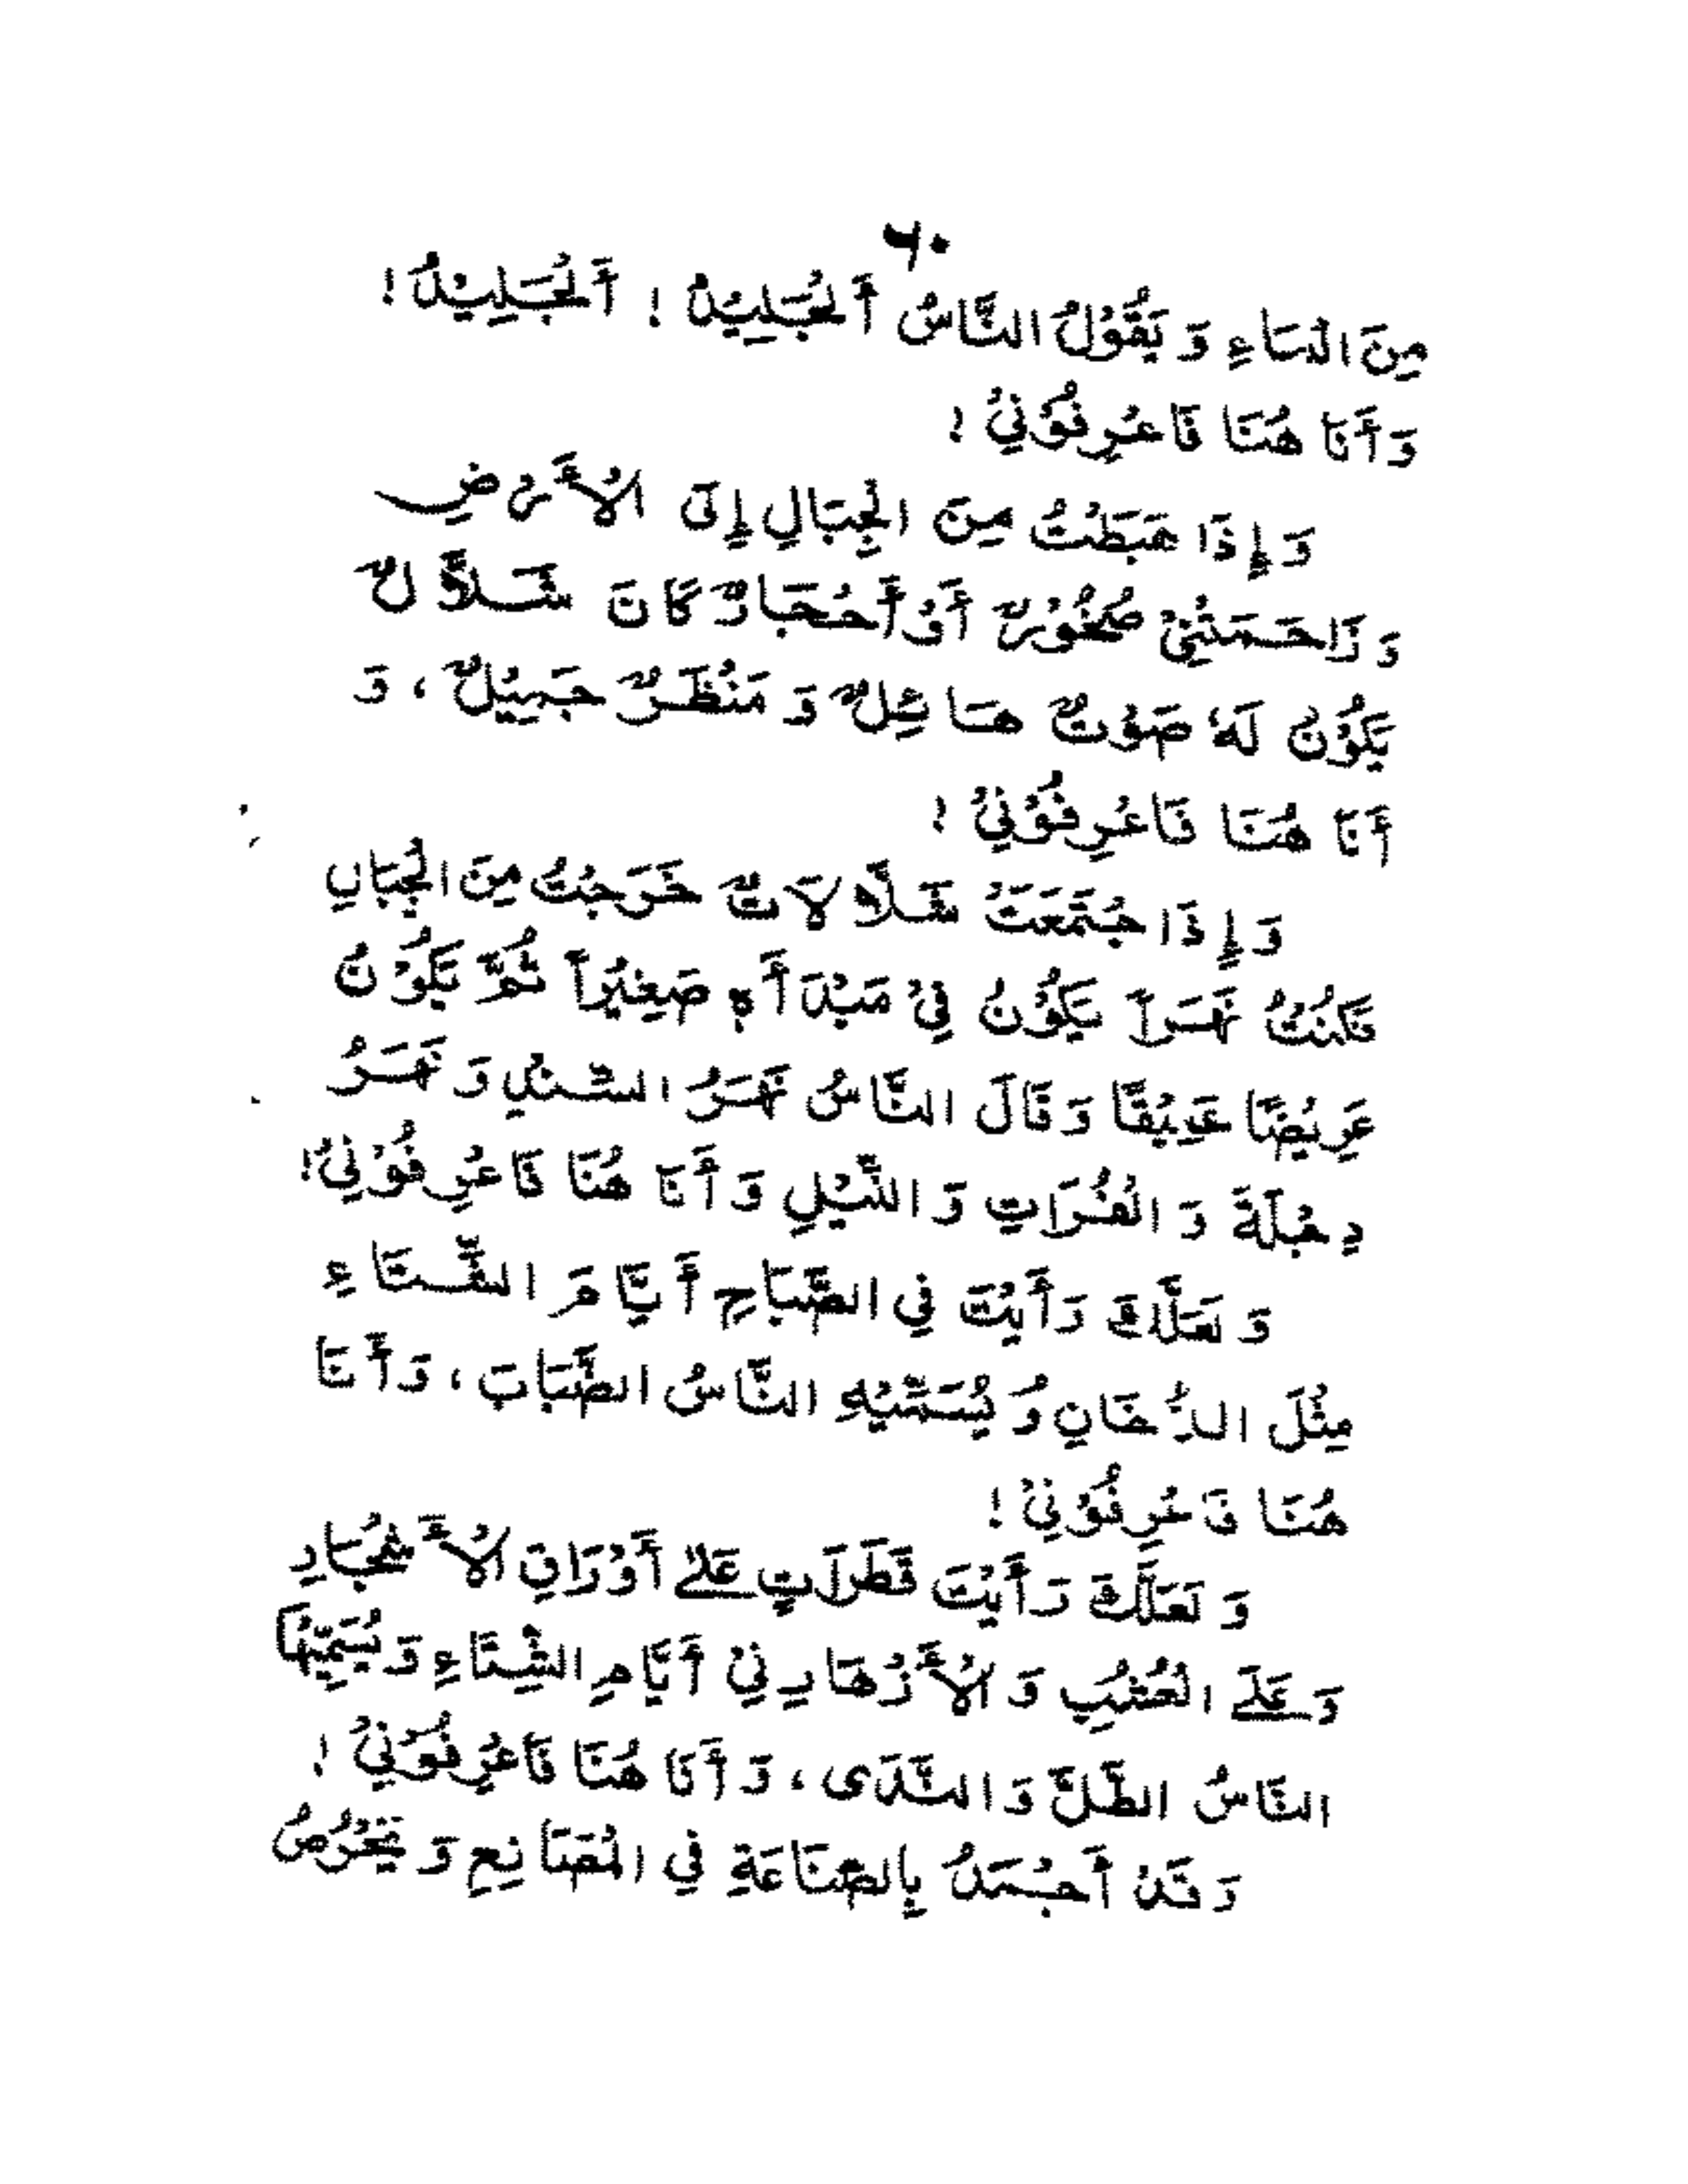 ٦٠
مِنَ السَاءِ وَ يَقُوْلُ النَّاسُ أَلْجَلِيْدُ ! أَلْجَلِيْدُ !
وَ أَنَا هُنَا فَاعْرِفُوْنِيْ !
وَ إِذَا هَبَطْتُ مِنَ الْجِبَالِ إِلَى الْأَرْضِ
وَ زَاحَمَتْنِيْ صُخُوْرٌ أَوْ أَحْجَارٌ كَانَ شَلَّالٌ
يَكُوْنُ لَهٗ صَوْتٌ هَائِلٌ وَ مَنْظَرٌ جَمِيْلٌ ، وَ
أَنَا هُنَا فَاعْرِفُوْنِيْ !
وَ إِذَا جْتَمَعَتْ شَلَّالَاتٌ خَرَجْتُ مِنَ الْجِبَالِ
فَكُنْتُ نَهَراً يَكُوْنُ فِيْ مَبْدَأَهٖ صَغِيْراً ثُمَّ يَكُوْنُ
عَرِيْضًا عَمِيْقًا وَ قَالَ النَّاسُ نَهَرُ السِّنْدِ وَ نَهَرُ
دِجْلَةَ وَ الْفُرَاتِ وَ النِّيْلِ وَ أَنَا هُنَا فَاعْرِفُوْنِيْ!
وَ لَعَلَّكَ رَأَيْتَ فِي الصَّبَاحِ أَيَّامَ الشِّتَاءِ
مِثْلَ الدُّخَانِ وُ يُسَمِّيْهِ النَّاسُ الضَّبَابَ ، وَ أَنَا
هُنَا فَاعْرِفُوْنِيْ !
وَ لَعَلَّكَ رَأَيْتَ قَطَرَاتٍ عَلىٰ أَوْرَاقِ الْأَشْجَارِ
وَ عَلَى الْعُشْبِ وَ الْأَزْهَارِ فِيْ أَيَّامِ الشِّتَاءِ وَ يُسَمِّيْهَا
النَّاسُ الطَّلَّ وَ النَّدَى ، وَ أَنَا هُنَا فَاعْرِفُوْنِيْ !
وَ قَدْ أَجْمَدُ بِالصِّنَاعَةِ فِي الْمَصَانِعِ وَ يَحْرُصُ